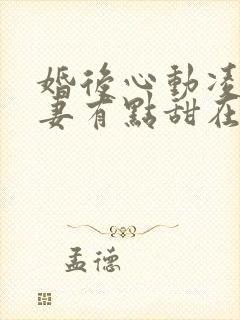 婚後心動凌
妻有點甜在
孟德